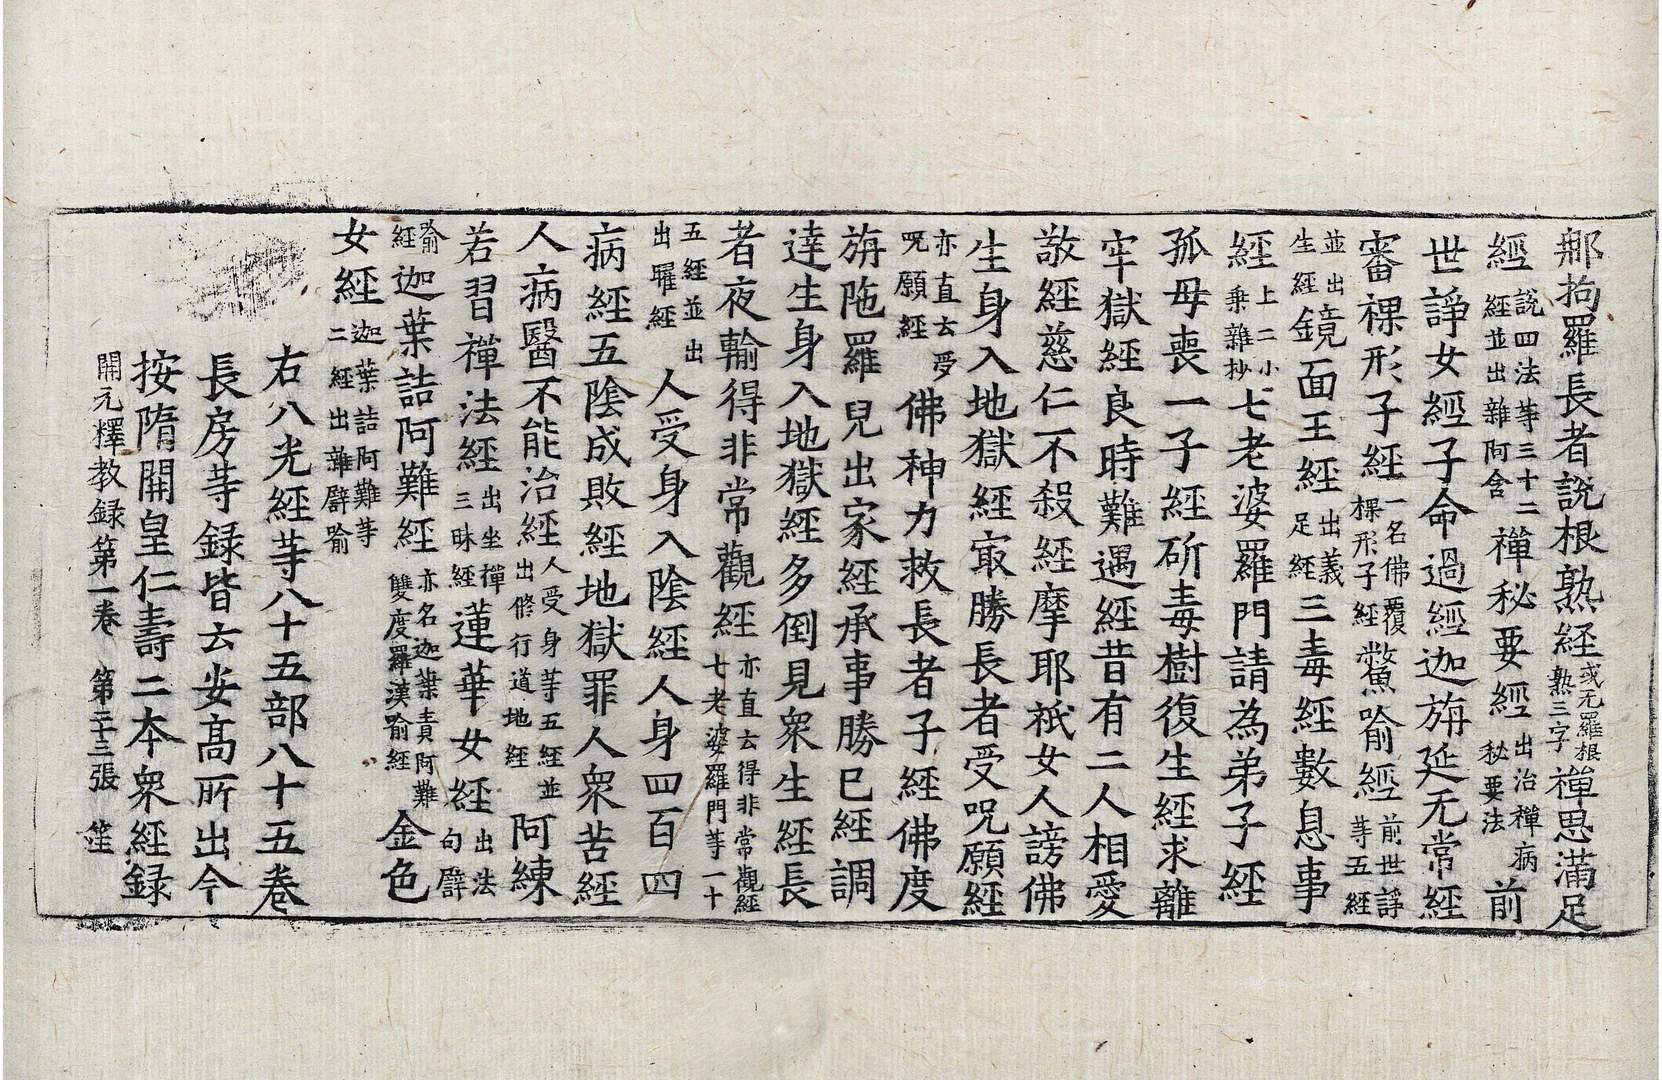 郍拘羅長者說根熟経或无羅根熟三字禪思滿足
經說四法等三十二經並出雜阿含禪秘要經出治禪病秘要法前
世諍女經子命過經迦旃延无常經
審裸形子經一名佛覆裸形子經鱉喻經前世諍等五經
並出生經鏡面王經出義足經三毒經數息事
經上二小乗雜抄七老婆羅門請為弟子經
孤母喪一子經斫毒樹復生經求離
牢獄經良時難遇經昔有二人相愛
敬經慈仁不殺經摩耶祇女人謗佛
生身入地獄經㝡勝長者受呪願經
亦直云受呪願經佛神力救長者子經佛度
旃陁羅兒出家經承事勝已經調
達生身入地獄經多倒見衆生經長
者夜輸得非常觀經亦直云得非常觀經七老婆羅門等一十
五經並出出曜經人受身入陰經人身四百四
病經五陰成敗經地獄罪人衆苦經
人病醫不能治經人受身等五經並出脩行道地經阿練
若習禪法經出坐禪三昧經蓮華女經出法句譬
喻經迦葉詰阿難經亦名迦葉責阿難雙度羅漢喻經金色
女經迦葉詰阿難等二經出雜譬喻
右八光經等八十五部八十五卷
長房等録皆云安高所出今
按隋開皇仁壽二本衆經録
開元釋教録第一卷　第三十三張　笙